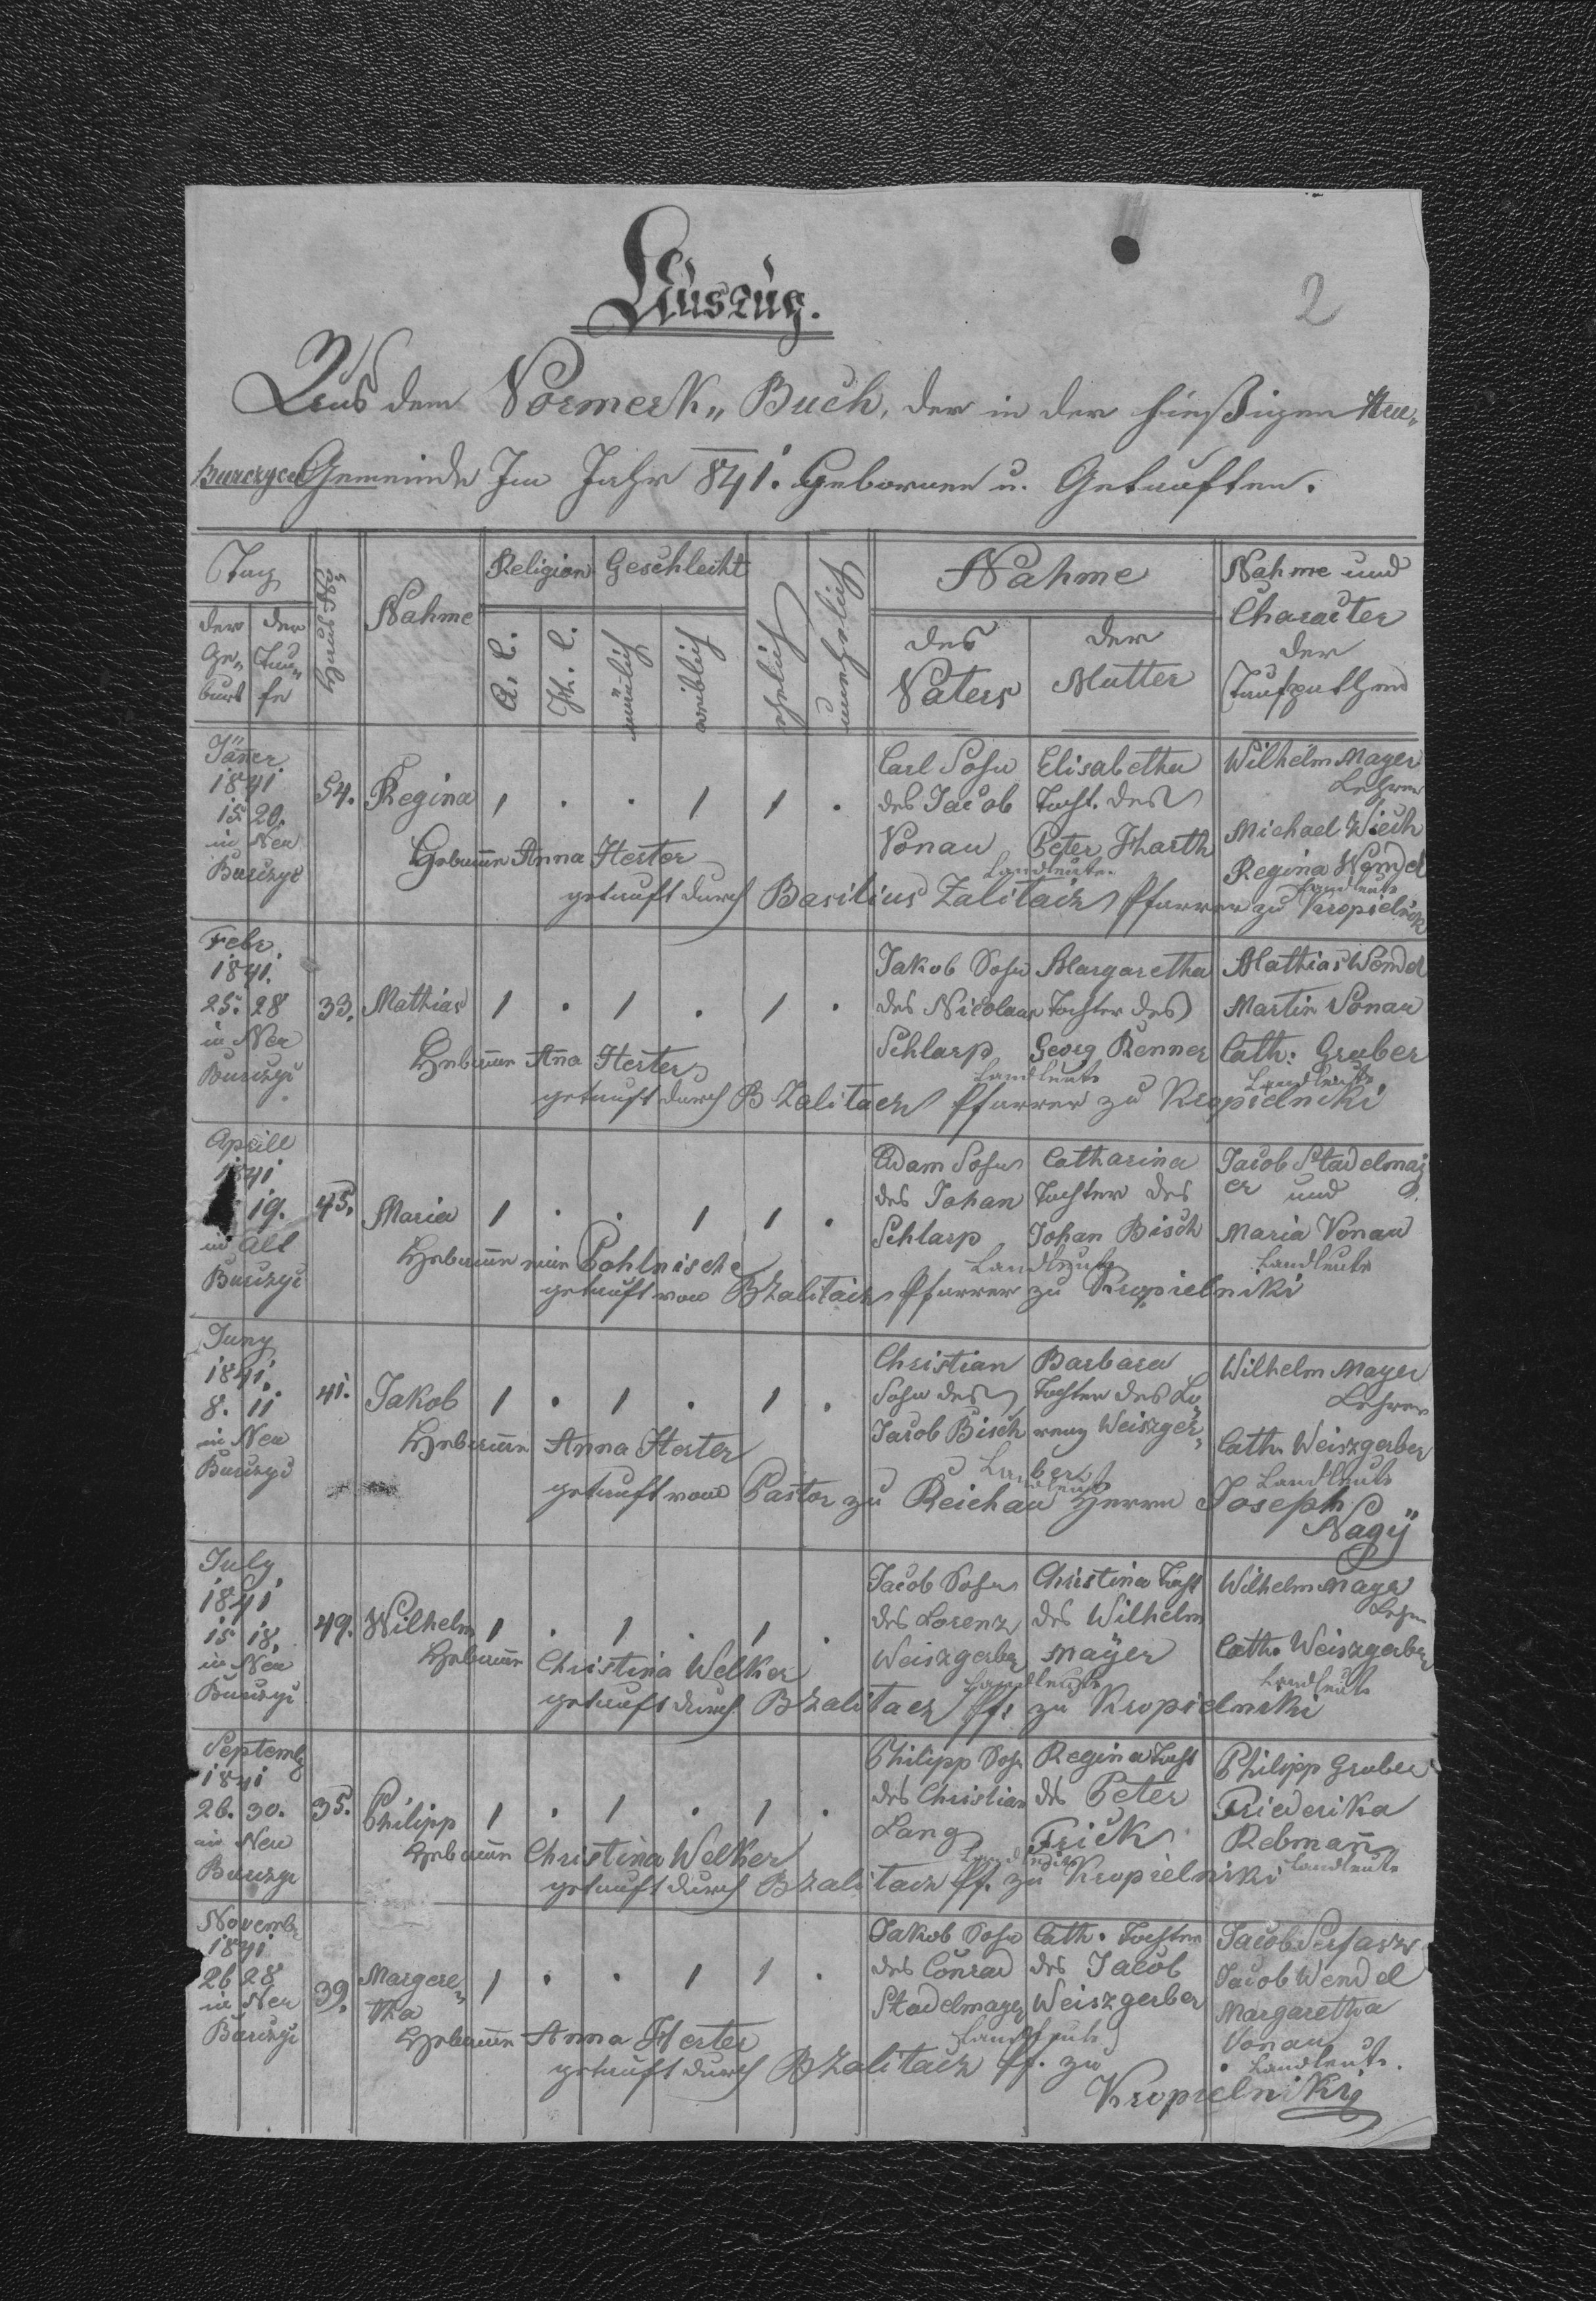 2
Auszug.
Aus dem Vormerk„ Buch, der in der hießigen Neu„
Burczycer Gemeinde Im Jahr 841. Gebornen u. Getauften.
Tag
der Ge„burt
der Tau„fe
Haus Nro
Nahme
Religion
A. C.
H. C.
Geschlecht
mänlich
weiblich
ehelich
unehelich
Nahme
des Vaters
der Mutter
Nahme und
Character
der
Taufpathen
Jäner
1841
15 20.
in Neu
Burczyce
54. Regina 1 . . 1 1 .
Carl Sohn
des Jacob
Vonau
Elisabetha
Tocht. des
Peter Harth
Landleute.
Wilhelm Mayer
Lehrer
Michael
Regina Wendel
Landleute
Hebamme Anna Herter
getauft durch Basilius Zalitacz Pfarrer zu Kropielnick
Febr
1841.
25. 28
in Neu
Burczyc
33. Mathias 1 . 1 . 1 .
Jakob Sohn
des Nicolaus
Schlarp
Margaretha
Tochter des
Georg Renner
Landleute
Mathias Wendel
Martin Vonau
Cath: Gruber
Landleute
Hebamme Ana Herter
getauft durch B Zalitacz Pfarrer zu Kropielniki
Aprill
1841
19.
in Alt
Burczyc
45. Maria 1 . . 1 1 .
Adam Sohn
des Johan
Schlarp
Catharina
Tochter des
Johan Bisch
Landleute
Jacob Stadelmay
er und
Maria Vonau
Landleute
Hebamme eine Pohlnische
getauft von B Zalitacz Pfarrer zu Kropielniki
Juny
1841.
8. 11
in Neu
Burczyc
41. Jakob 1 . 1 . 1 .
Christian
Sohn des
Jacob Bisch
Barbara
Tochter des Lo„
renz Weiszger„
ber
Landleute
Wilhelm Mayer
Lehrer
Cath. Weiszgerber
Landleute
Hebamme Anna Herter
getauft vom Pastor zu Reichau Herrn Joseph
Nagÿ
July
1841
15 18.
in Neu
Burczyc
49. Wilhelm 1 . 1 . 1 .
Jacob Sohn
des Lorenz
Weiszgerber
Christina Tocht
des Wilhelm
Mayer
Landleute
Wilhelm Mayer
Lehrer
Cath. Weiszgerber
Landleute
Hebamme Christina Welker
getauft durch B Zalitacz Pf. zu Kropielniki
Septemb
1841
26. 30.
in Neu
Burczyc
35. Philipp 1 . 1 . 1 .
Philipp Sohn
des Christian
Lang
Regina Tocht
des Peter
Frick
Landleute
Philipp Gruber
Friederika
Rebmañ
Landleute
Hebamme Christina Welker
getauft durch B Zalitacz Pf. zu Kropielniki
Novemb
1841
26 28
in Neu
Burczyc
39. Margere„
tha 1 . . 1 1 .
Jakob Sohn
des Conrad
Stadelmayer
Cath. Tochter
des Jacob
Weiszgerber
Landleute
Jacob
Jacob Wendel
Margaretha
Vonau
Landleute.
Hebamme Anna Herter
getauft durch B Zalitacz Pf. zu
Kropielniki